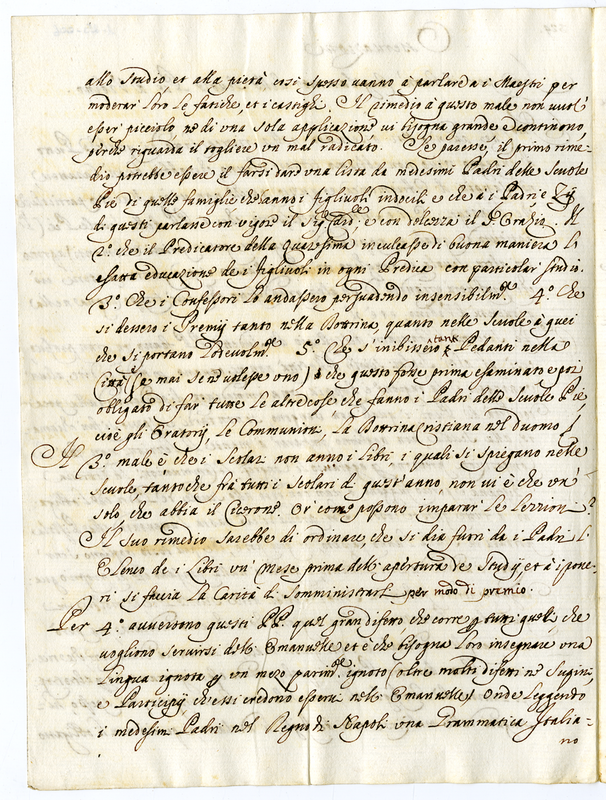 allo Studio et alla pietà così spesso uanno à parlare à i Maestri per
moderar loro le fatiche, et i castighi. Il rimedio à questo male non uuol
esser picciolo, nè di una sola applicazione ui bisogna grande e continouo,
perche riguarda il togliere un mal radicato. Se paresse, il primo rime-
dio potrebbe essere il farsi dare una lista da medesimi Padri delle Scuole
Pie di quelle famiglie che anno i figliuoli indocili e che à i Padri e Zij
di questi parlane con uigore il Sig.r Card.le e con dolcezza il P. Orazio. Il
2.º che il Predicatore della Quaresima inculcasse di buona maniera la
esatta educazione de i figliuoli in ogni Predica con particolar studio.
3.º Che i Confessori lo andassero persuadendo insensibilm.te 4.º Che
si dessero i Premij tanto nella Dottrina, quanto nelle Scuole à quei
che si portano lodeuolm.te 5.º Che s'inibissero tanti Pedanti nella
Città (se mai se n'uolesse uno) che questo fosse prima esaminato e poi
obligato di far tutte le altre cose che fanno i Padri delle Scuole Pie
cioè gli Oratorij, le Communioni, la Dottrina Cristiana nel duomo
Il 3.º male è che i Scolari non anno i Libri i quali si spiegano nelle
Scuole, tanto che frà tutti i Scolari di quest'anno, non ui è che un
solo che abbia il Cicerone. Or come possono imparar le lezzioni?
Il suo rimedio sarebbe di ordinare, che si dia fuori da i Padri l'
Elenco de i Libri un Mese prima dell'apertura de Studij, et à i poue-
ri si faccia la Carità di somministrarli per modo di premio.
Per 4.º auuertono questi PP. quel gran difetto, che corre p tutti quelli, che
uogliono seruirsi dell'Emanuelle et è che bisogna loro insegnare una
lingua ignota p un mezo parim.te ignoto (oltre molti difetti ne Supini,
e Participij che essi credono essere nell'Emanuelle) Onde leggendo
i medesimi Padri nel Regno di Napoli una Grammatica Italia-
no